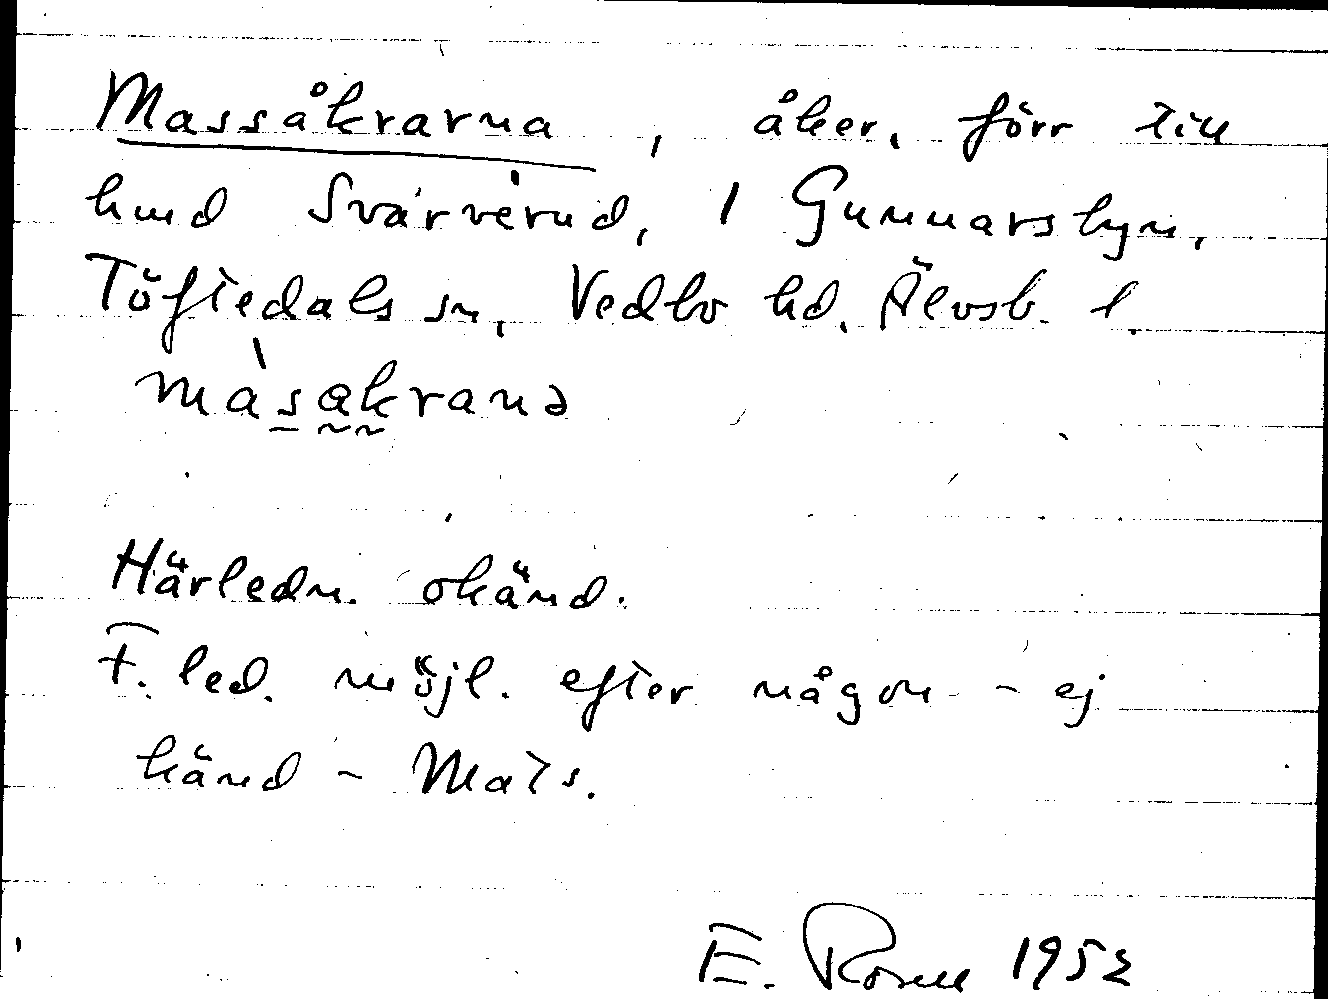 Massåkrarna, åker, förr till
hmd Svärverud, 1 Gunnarsbyn,
Töftedals sn, Vedbo hd. Älvsb. l.
màsakranə
Härledn. okänd.
F. led. möjl. efter någon - ej
känd - Mats.
E. Rosell 1952